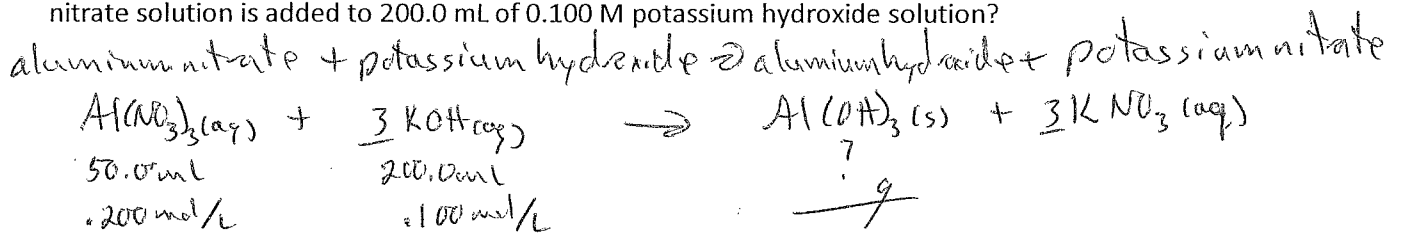 nitrate solution is added to 200.0 mL of 0.100 M potassium hydroxide solution?
aluminum nitrate + potassium hydroxide → alumiumhydroxide + potassium nitrate
Al(NO₃)₃(aq) + 3 KOH(aq) → Al(OH)₃(s) + 3KNO₃(aq)
50.0ml 200.0ml ?
.200 mol/L .100 mol/L g